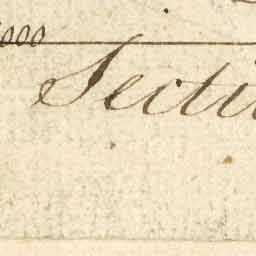 000
Secti